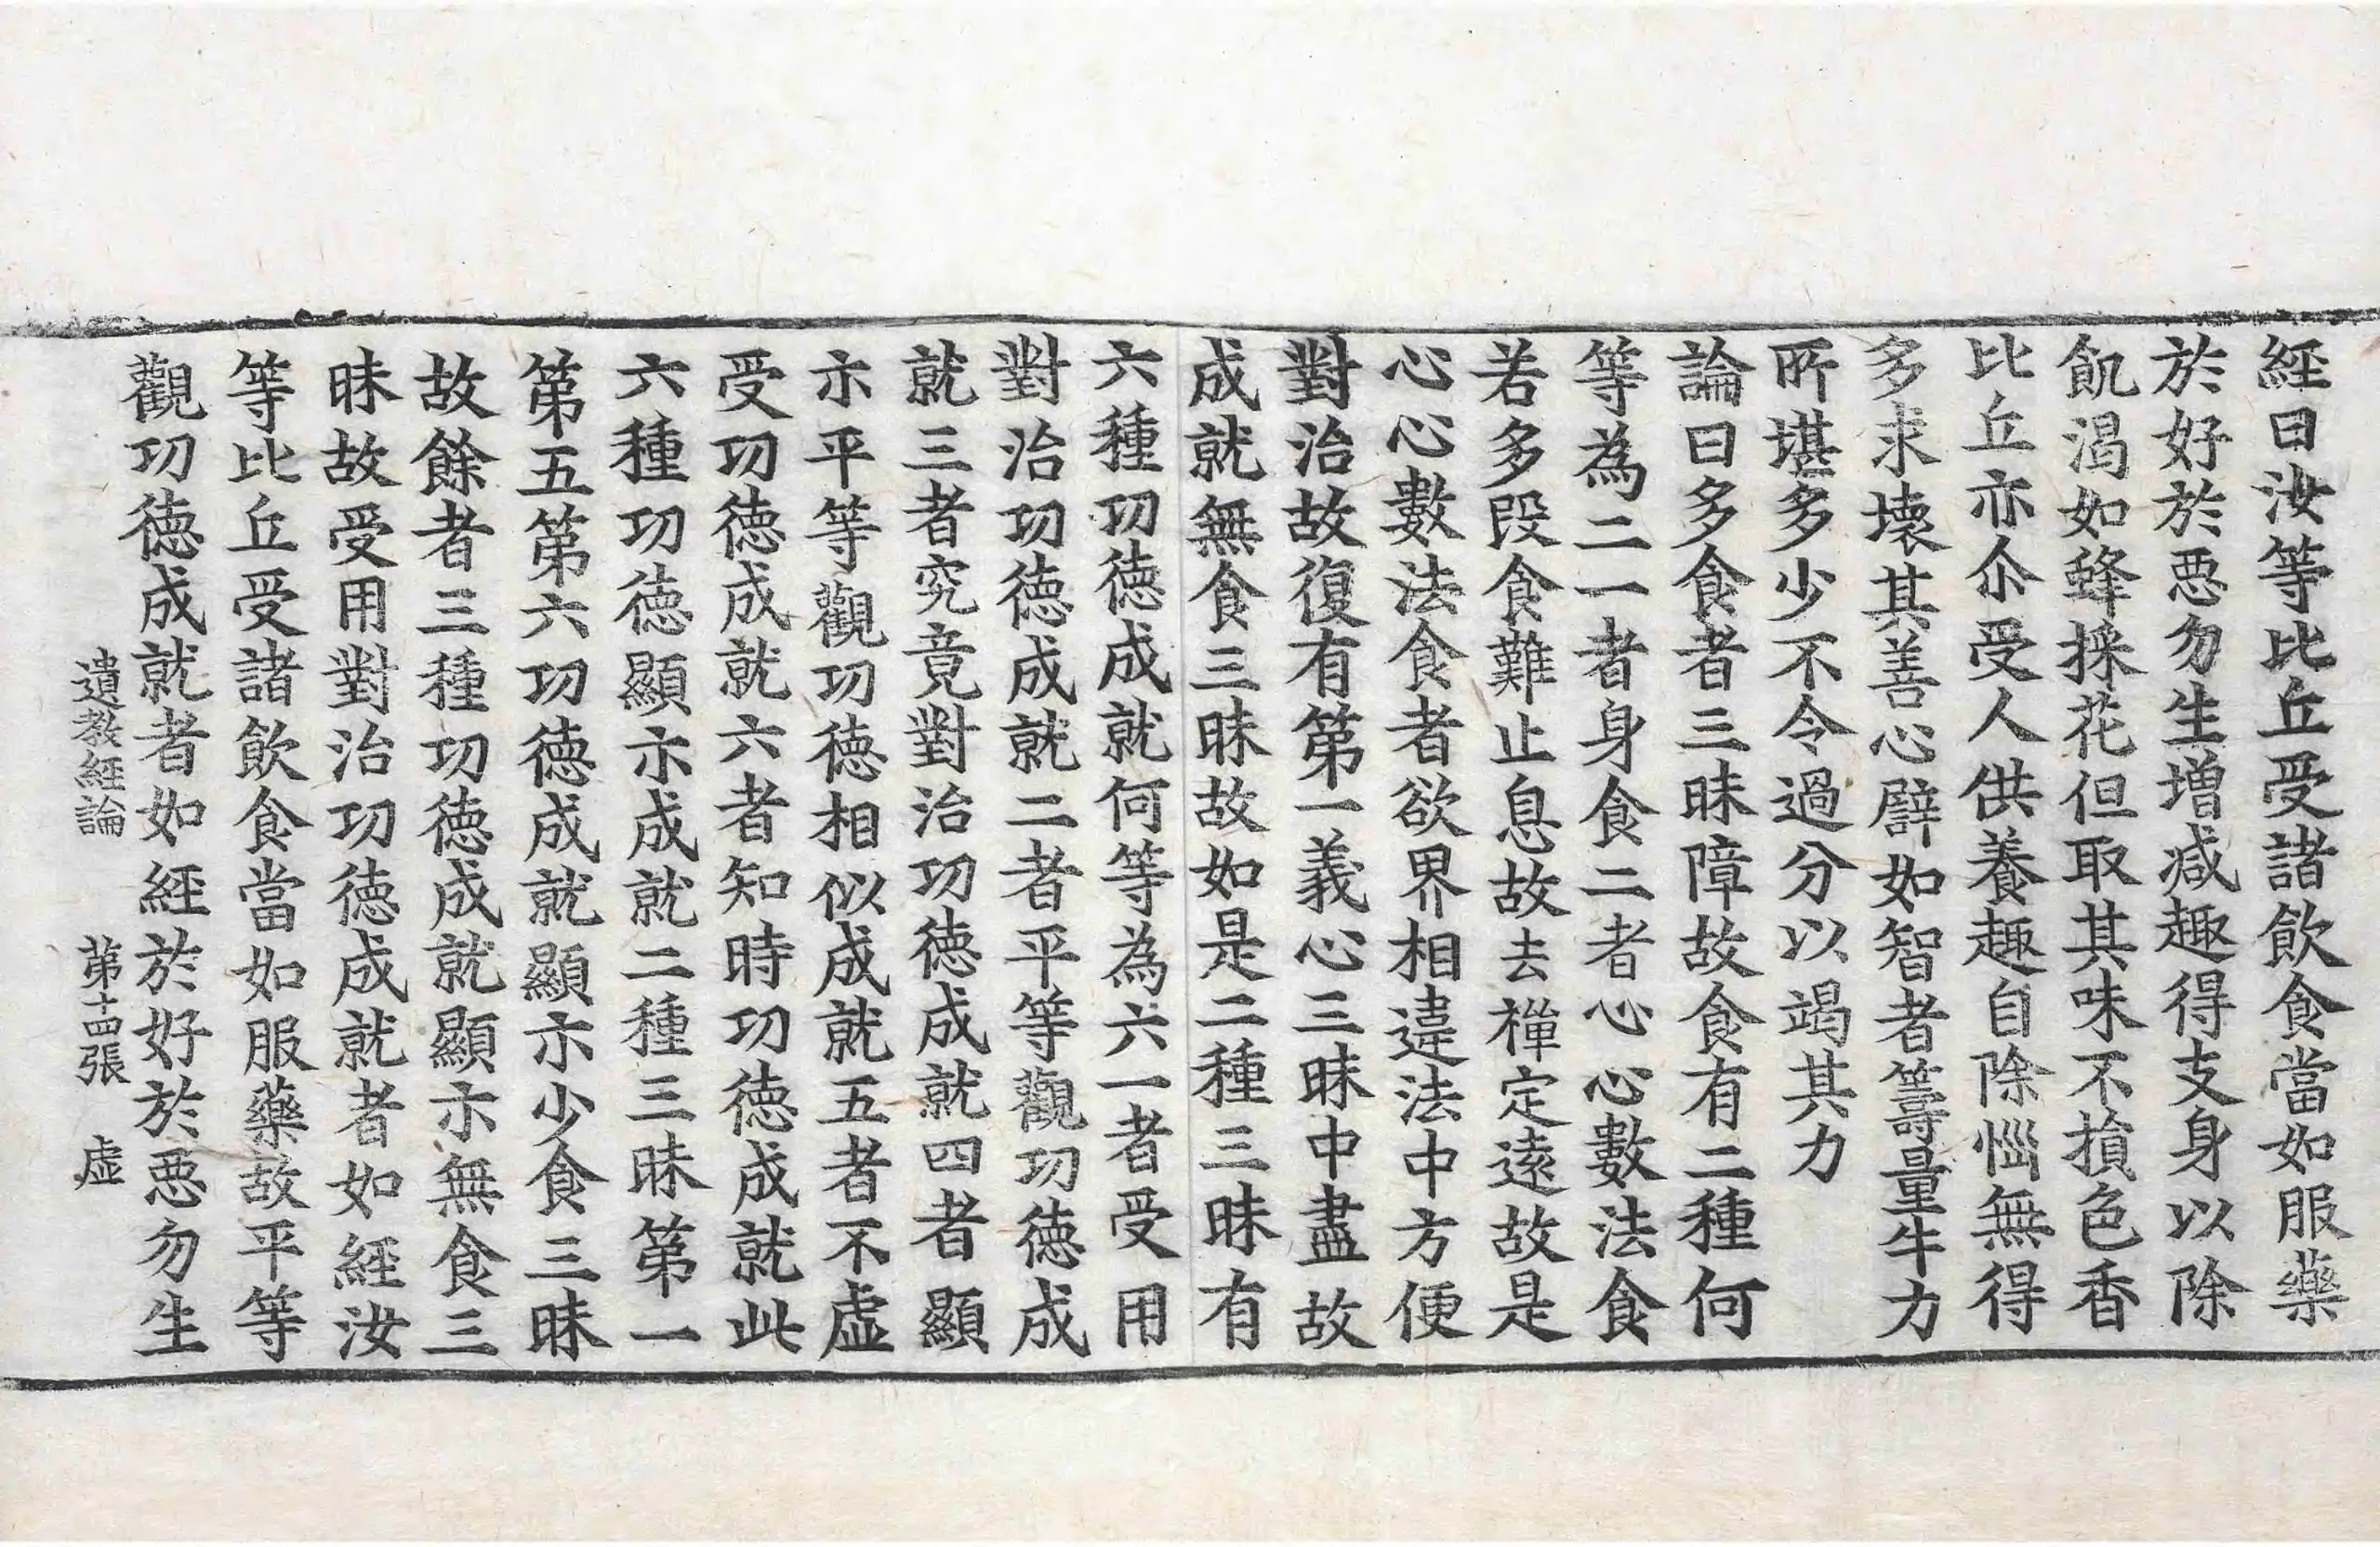 經曰汝等比丘受諸飮食當如服藥
於好於惡勿生增减趣得支身以除
飢渴如蜂採花但取其味不損色香
比丘亦尒受人供養趣自除惱無得
多求壞其善心譬如智者籌量牛力
所堪多少不令過分以竭其力
論曰多食者三昧障故食有二種何
等為二一者身食二者心心數法食
若多段食難止息故去禪定遠故是
心心數法食者欲界相違法中方便
對治故復有第一義心三昧中盡故
成就無食三昧故如是二種三昧有
六種功德成就何等為六一者受用
對治功德成就二者平等觀功德成
就三者究竟對治功德成就四者顯
示平等觀功德相似成就五者不虛
受功德成就六者知時功德成就此
六種功德顯示成就二種三昧第一
第五第六功德成就顯示少食三昧
故餘者三種功德成就顯示無食三
昧故受用對治功德成就者如經汝
等比丘受諸飮食當如服藥故平等
觀功德成就者如經於好於惡勿生
遺教經論 第十四張 虛